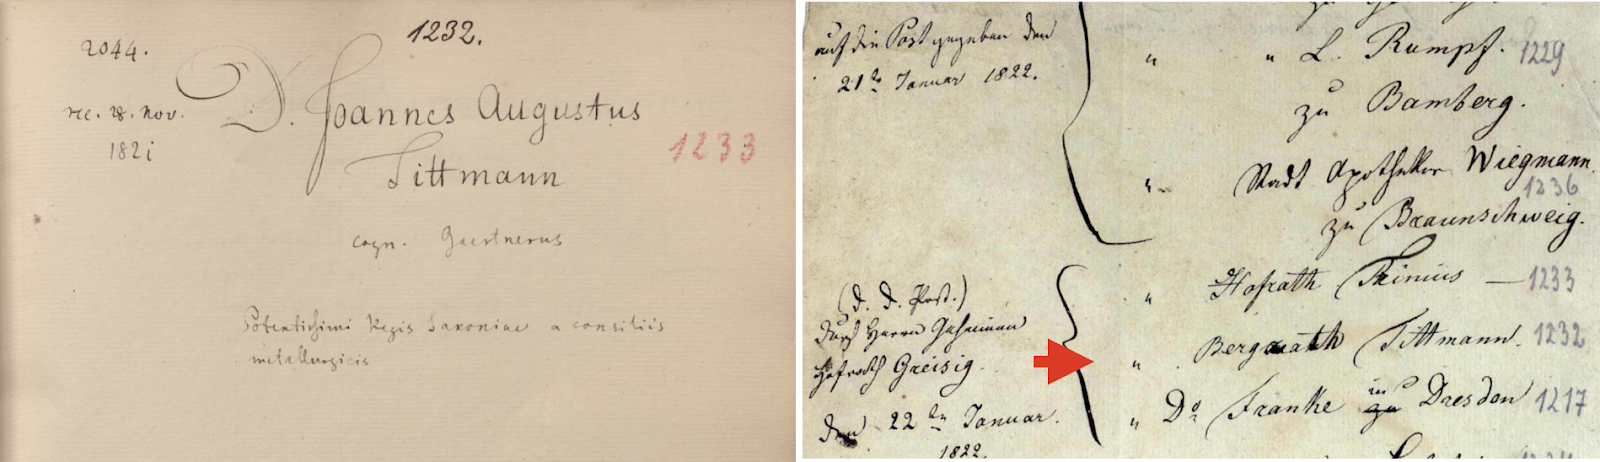 1232.
2044.
rec. 28. Nov.
1821
D. Joannes Augustus
Tittmann
1233
cogn. Gaertnerus
Potentissimi Regis Saxoniae a consiliis
metallurgicis
auf die Post gegeben den
21ten Januar 1822.
" " L. Rumpf. 1229
zu Bamberg.
" Stadt Apotheker Wiegmann
1236
zu Braunschweig.
(d. d. Post.)
durch Herrn Geheimen
Hofrath Greisig.
den 22ten Januar.
1822.
" Hofrath Trinius — 1233
" Bergrath Tittmann. 1232
" Dr Franke in zu Dresden 1217